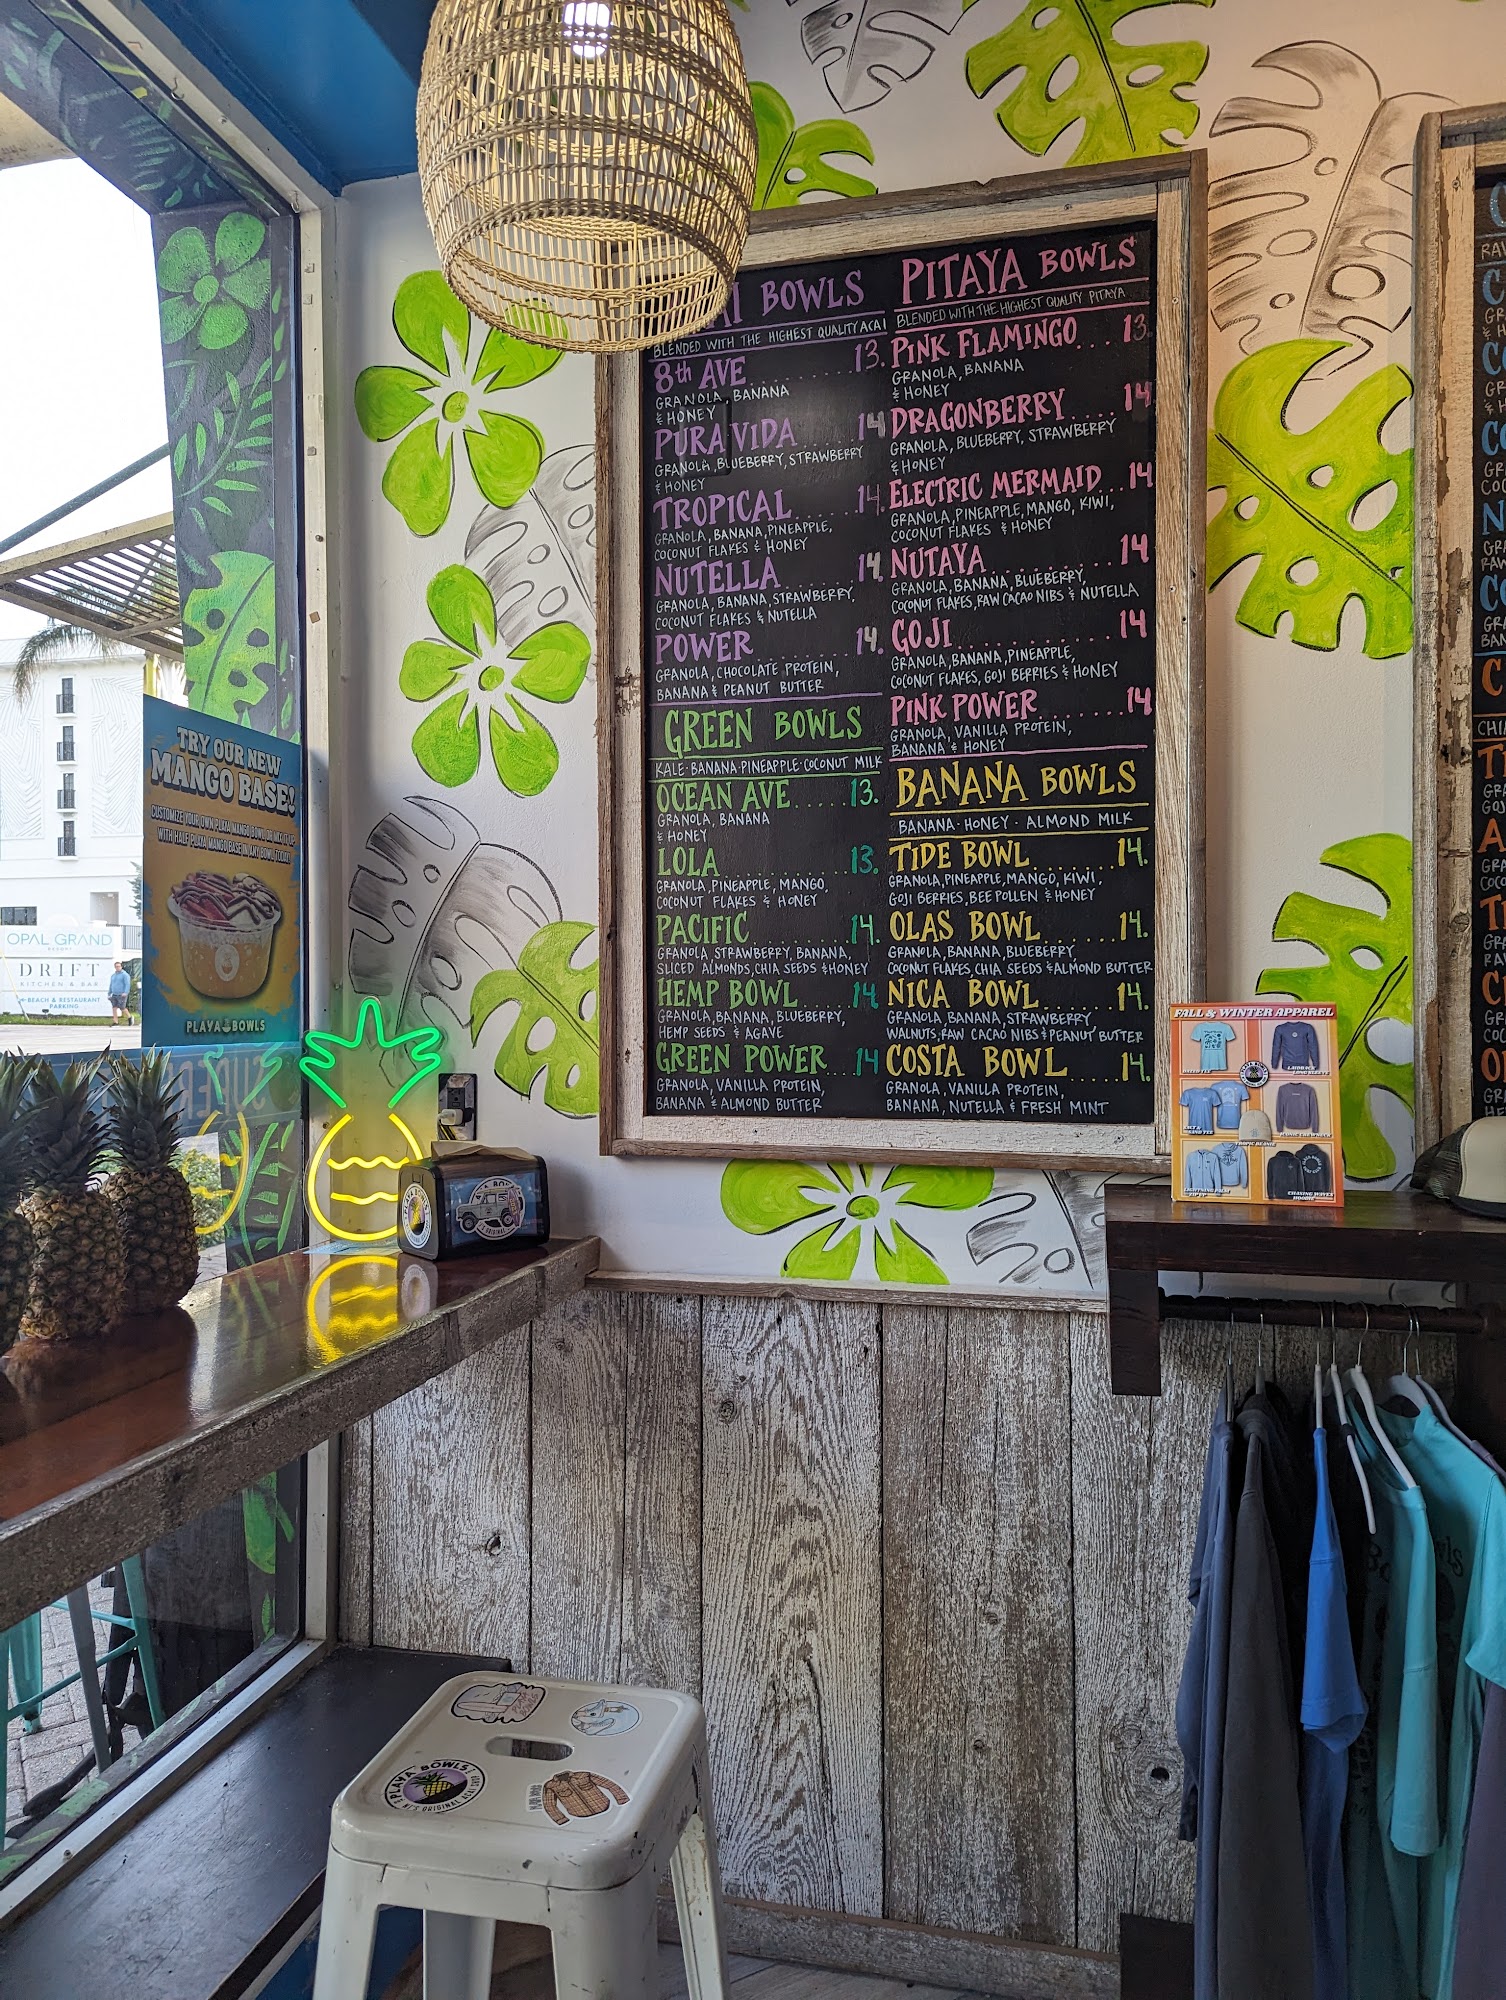 TRY OUR NEW
MANGO BASE!
CUSTOMIZE YOUR OWN PLAYA MANGO BOWL OR MIX IT UP
WITH HALF PLAYA MANGO BASE IN ANY BOWL TODAY!
PLAYA BOWLS
OPAL GRAND
RESORT
DRIFT
KITCHEN & BAR
BEACH & RESTAURANT
PARKING
BOWLS
BLENDED WITH THE HIGHEST QUALITY ACAI
8th AVE........13.
GRANOLA, BANANA
& HONEY
PURA VIDA......14
GRANOLA, BLUEBERRY, STRAWBERRY
& HONEY
TROPICAL.......14.
GRANOLA, BANANA, PINEAPPLE,
COCONUT FLAKES & HONEY
NUTELLA........14.
GRANOLA, BANANA, STRAWBERRY,
COCONUT FLAKES & NUTELLA
POWER..........14.
GRANOLA, CHOCOLATE PROTEIN,
BANANA & PEANUT BUTTER
GREEN BOWLS
KALE·BANANA·PINEAPPLE·COCONUT MILK
OCEAN AVE.....13.
GRANOLA, BANANA
& HONEY
LOLA 13.
GRANOLA, PINEAPPLE, MANGO,
COCONUT FLAKES & HONEY
PACIFIC........14.
GRANOLA, STRAWBERRY, BANANA,
SLICED ALMONDS, CHIA SEEDS & HONEY
HEMP BOWL.....14
GRANOLA, BANANA, BLUEBERRY,
HEMP SEEDS & AGAVE
GREEN POWER...14
GRANOLA, VANILLA PROTEIN,
BANANA & ALMOND BUTTER
PITAYA BOWLS
BLENDED WITH THE HIGHEST QUALITY PITAYA
PINK FLAMINGO...13.
GRANOLA, BANANA
& HONEY
DRAGONBERRY....14
GRANOLA, BLUEBERRY, STRAWBERRY
& HONEY
ELECTRIC MERMAID..14
GRANOLA, PINEAPPLE, MANGO, KIWI,
COCONUT FLAKES & HONEY
NUTAYA.........14
GRANOLA, BANANA, BLUEBERRY,
COCONUT FLAKES, RAW CACAO NIBS & NUTELLA
GOJI...........14
GRANOLA, BANANA, PINEAPPLE,
COCONUT FLAKES, GOJI BERRIES & HONEY
PINK POWER.......14
GRANOLA, VANILLA PROTEIN,
BANANA & HONEY
BANANA BOWLS
BANANA·HONEY·ALMOND MILK
TIDE BOWL......14.
GRANOLA, PINEAPPLE, MANGO, KIWI,
GOJI BERRIES, BEE POLLEN & HONEY
OLAS BOWL.....14.
GRANOLA, BANANA, BLUEBERRY,
COCONUT FLAKES, CHIA SEEDS & ALMOND BUTTER
NICA BOWL.....14.
GRANOLA, BANANA, STRAWBERRY,
WALNUTS, RAW CACAO NIBS & PEANUT BUTTER
COSTA BOWL....14.
GRANOLA, VANILLA PROTEIN,
BANANA, NUTELLA & FRESH MINT
FALL & WINTER APPAREL
LAIDBACK
LONG SLEEVE
TROPIC BEANIE
LIGHTNING PALM
ZIP UP
CHASING WAVES
HOODIE
PLAYA BOWLS
NJ'S ORIGINAL ACAI SHOP